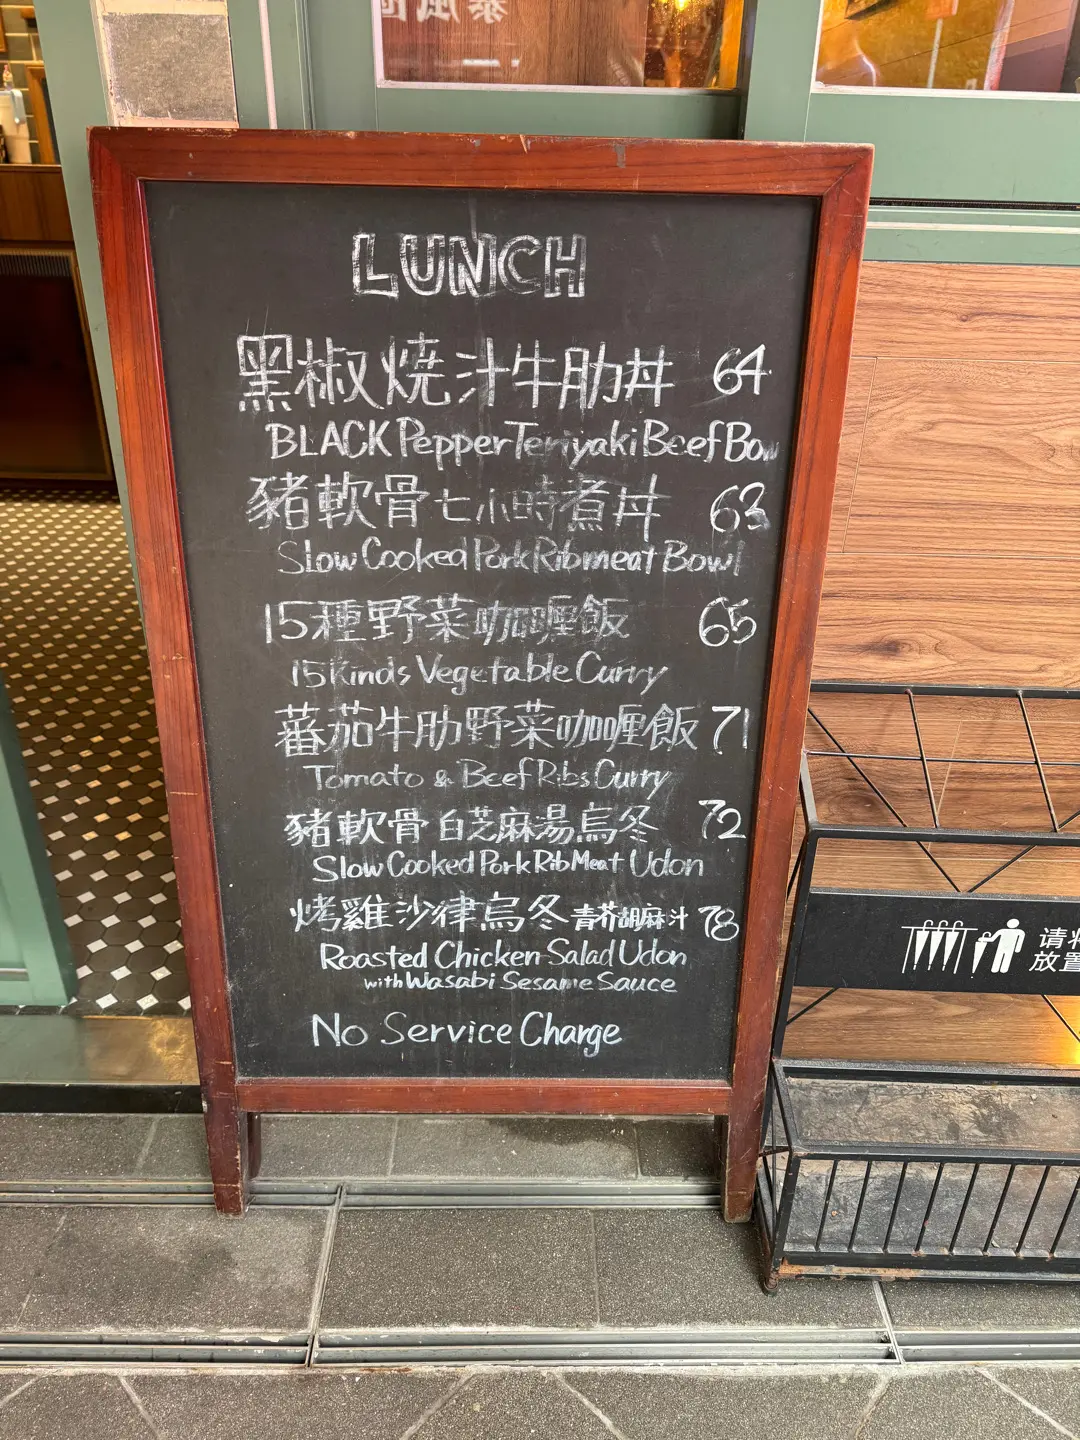 LUNCH
黑椒燒汁牛肋丼 64
BLACK Pepper Teriyaki Beef Bow
豬軟骨七小時煮丼 63
Slow Cooked Pork Ribmeat Bowl
15種野菜咖喱飯 65
15 Kinds Vegetable Curry
蕃茄牛肋野菜咖喱飯 71
Tomato & Beef Ribs Curry
豬軟骨白芝麻湯烏冬 72
Slow Cooked Pork Rib Meat Udon
烤雞沙律烏冬 青芥胡麻汁 78
Roasted Chicken Salad Udon
with Wasabi Sesame Sauce
No Service Charge
请将
放置